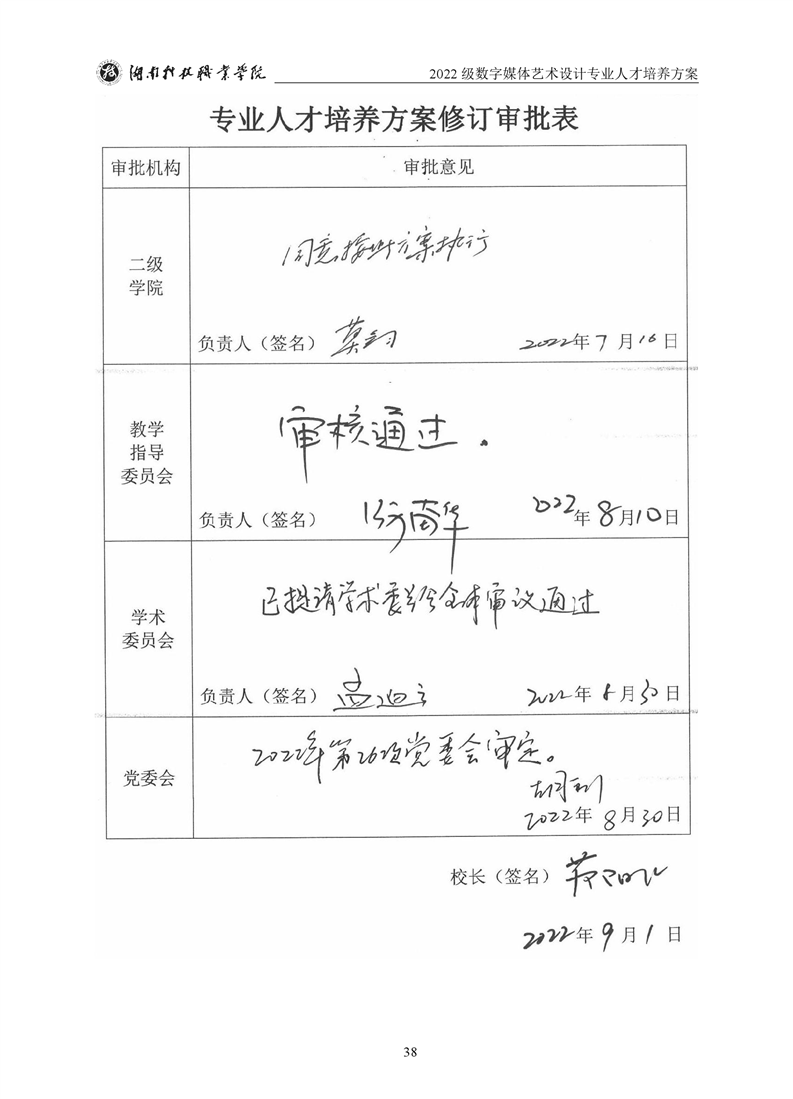 湖南科技职业学院
2022 级数字媒体艺术设计专业人才培养方案
专业人才培养方案修订审批表
审批机构
审批意见
二级
学院
同意按此方案执行
负责人（签名）
2022年7月16日
教学
指导
委员会
审核通过。
负责人（签名）
2022年8月10日
学术
委员会
已提请学术委员会全体审议通过
负责人（签名）
2022年8月30日
党委会
2022年第26次党委会审定。
2022年8月30日
校长（签名）
2022年9月1日
38